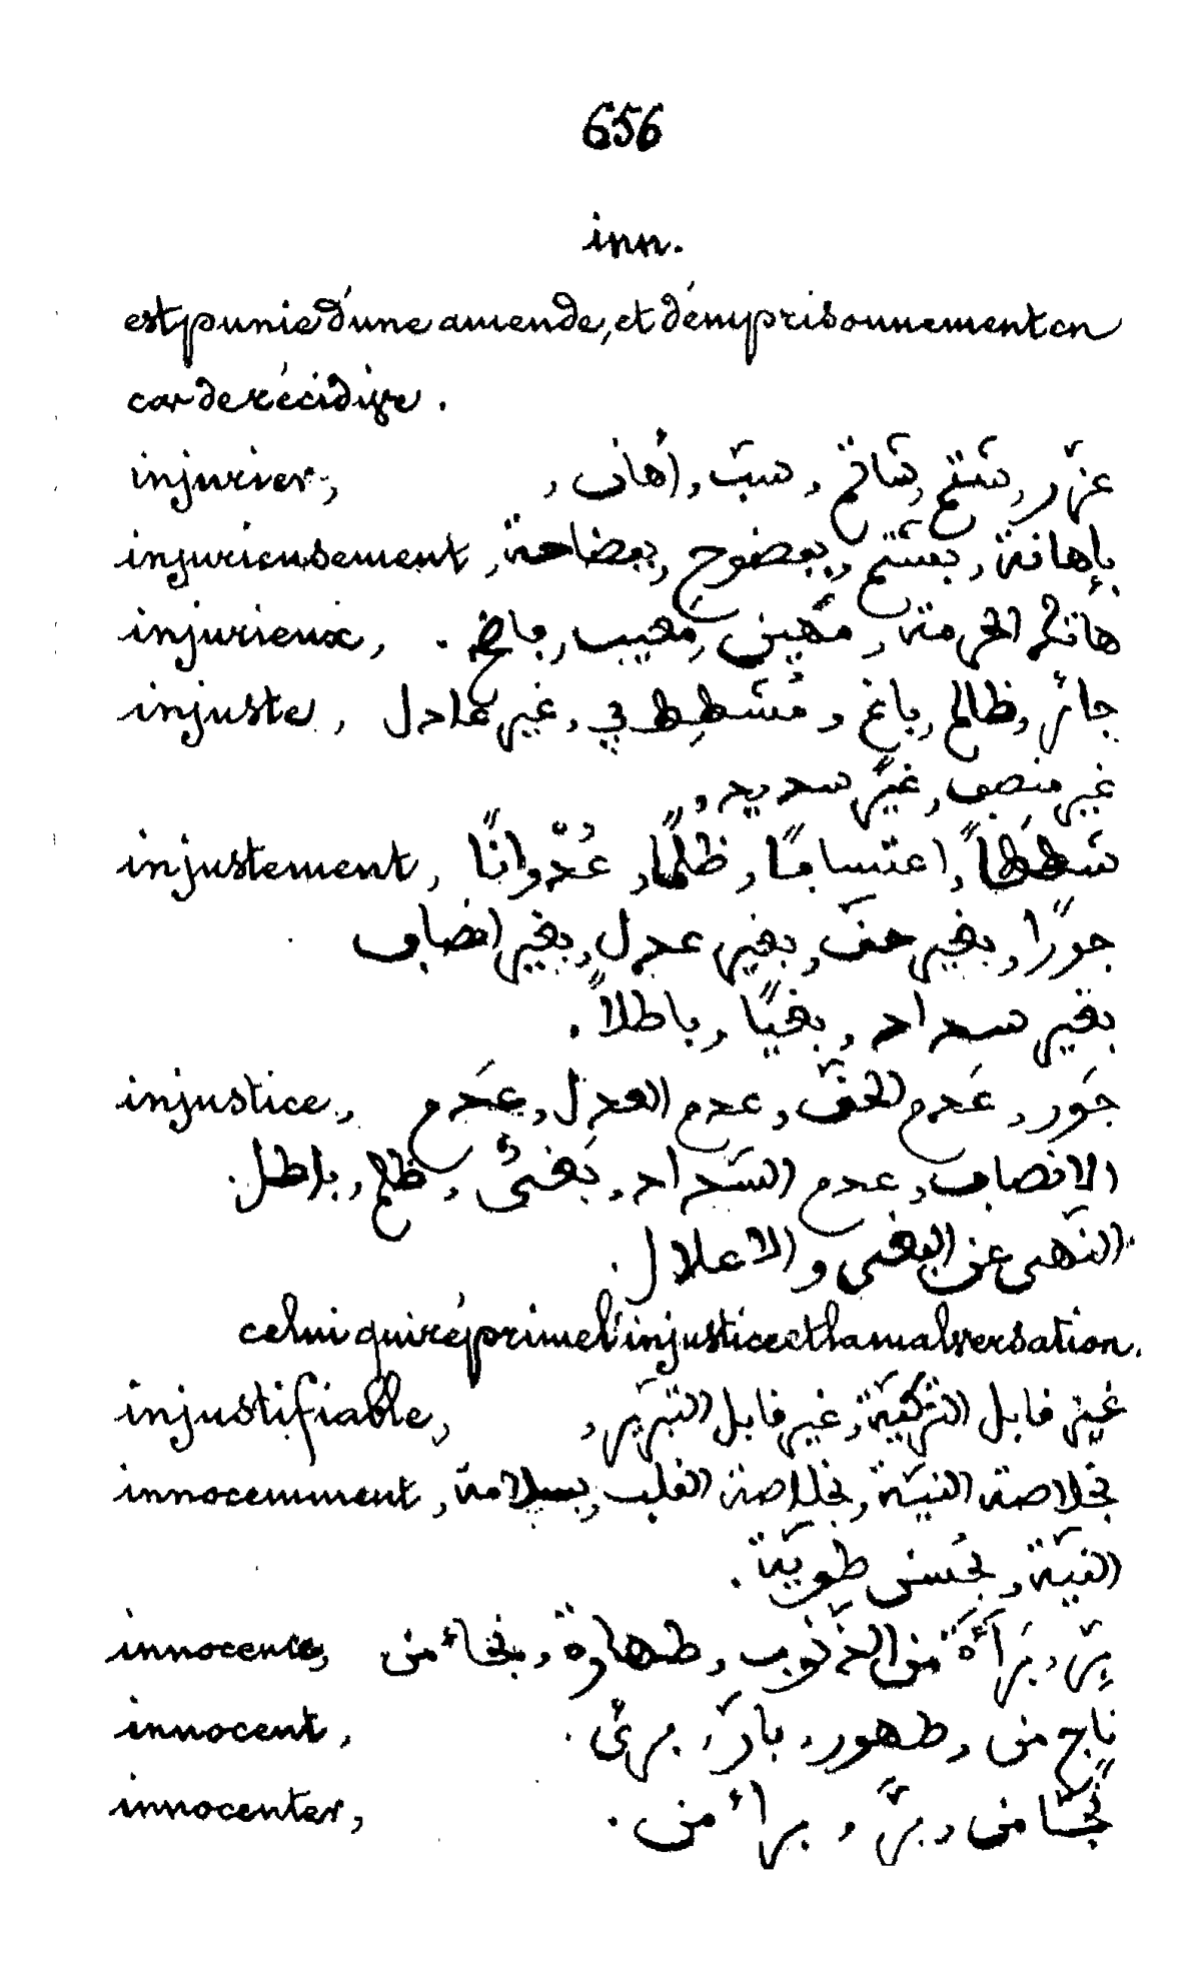 656
inn.
est punie d'une amende, et d'emprisonnement en
cas de récidive.
injurier, عزّر, شتم, شاتم, سبّ, أهان,
injurieusement, بإهانة, بشتم, بفضوح, بفضاحة,
injurieux, هاتك الحرمة, مهين, معيب, فاضح.
injuste, جائر, ظالم, باغ, مُشطِط في, غير عادل
غير منصف, غير سديد,
injustement, شططاً, اعتسافًا, ظلمًا, عُدْوانًا
جورًا, بغير حقّ, بغير عدل, بغير انصاف
بغير سداد, بغيًا, باطلاً.
injustice, جَور, عَدم الحقّ, عدم العدل, عَدم
الانصاف, عدم السّداد, بَغىٌ, ظلم, باطل.
النّهى عن البغى والاعلال.
celui qui réprime l'injustice et la malversation.
injustifiable, غير قابل التزكيّة, غير قابل التبرير,
innocemment, بخلاصة النيّة, بخلاصة القلب, بسلامة
النيّة, بحُسن طويّة.
innocence, بِرّ, بَرَأَةٌ من الذّنوب, طهارة, نجاء من
innocent, ناج من, طهور, بارّ, برىٌٔ.
innocenter, نجّا من, برّ, برأ من.